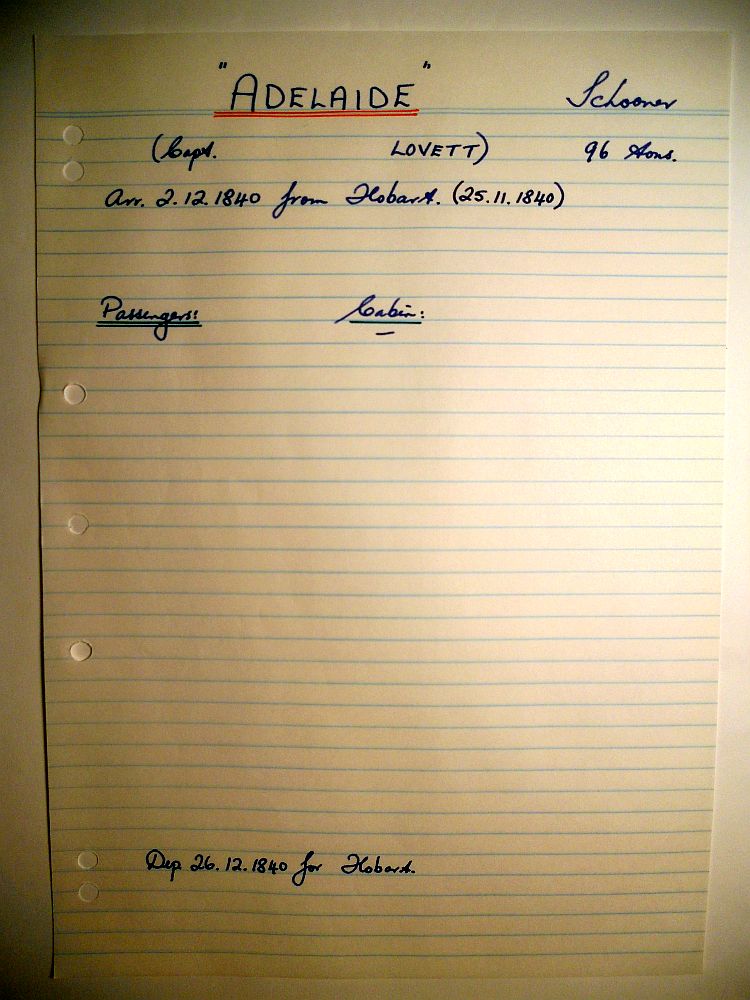 "ADELAIDE" Schooner
(Capt. LOVETT) 96 tons.
Arr. 2.12.1840 from Hobart. (25.11.1840)
Passengers: Cabin:
–
Dep 26.12.1840 for Hobart.